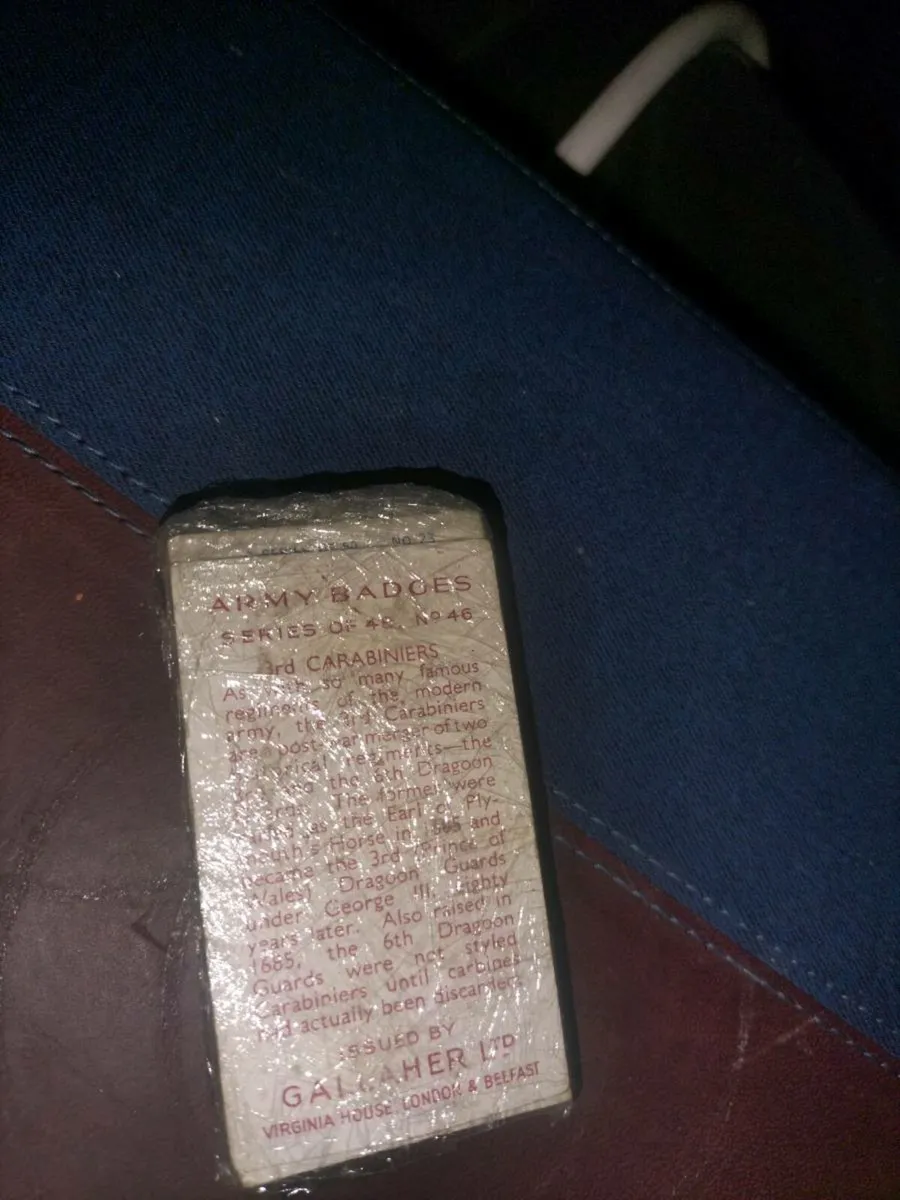 OF 50 NO 23
ARMY BADGES
SERIES OF 48. No 46
3rd CARABINIERS
As with so many famous
regiments of the modern
army, the 3rd Carabiniers
are a post-war merger of two
historical regiments—the
3rd and the 6th Dragoon
Guards. The former were
raised as the Earl of Ply-
mouth's Horse in 1685 and
became the 3rd (Prince of
Wales) Dragoon Guards
under George III, eighty
years later. Also raised in
1685, the 6th Dragoon
Guards were not styled
Carabiniers until carbines
had actually been discarded.
ISSUED BY
GALLAHER LTD
VIRGINIA HOUSE, LONDON & BELFAST